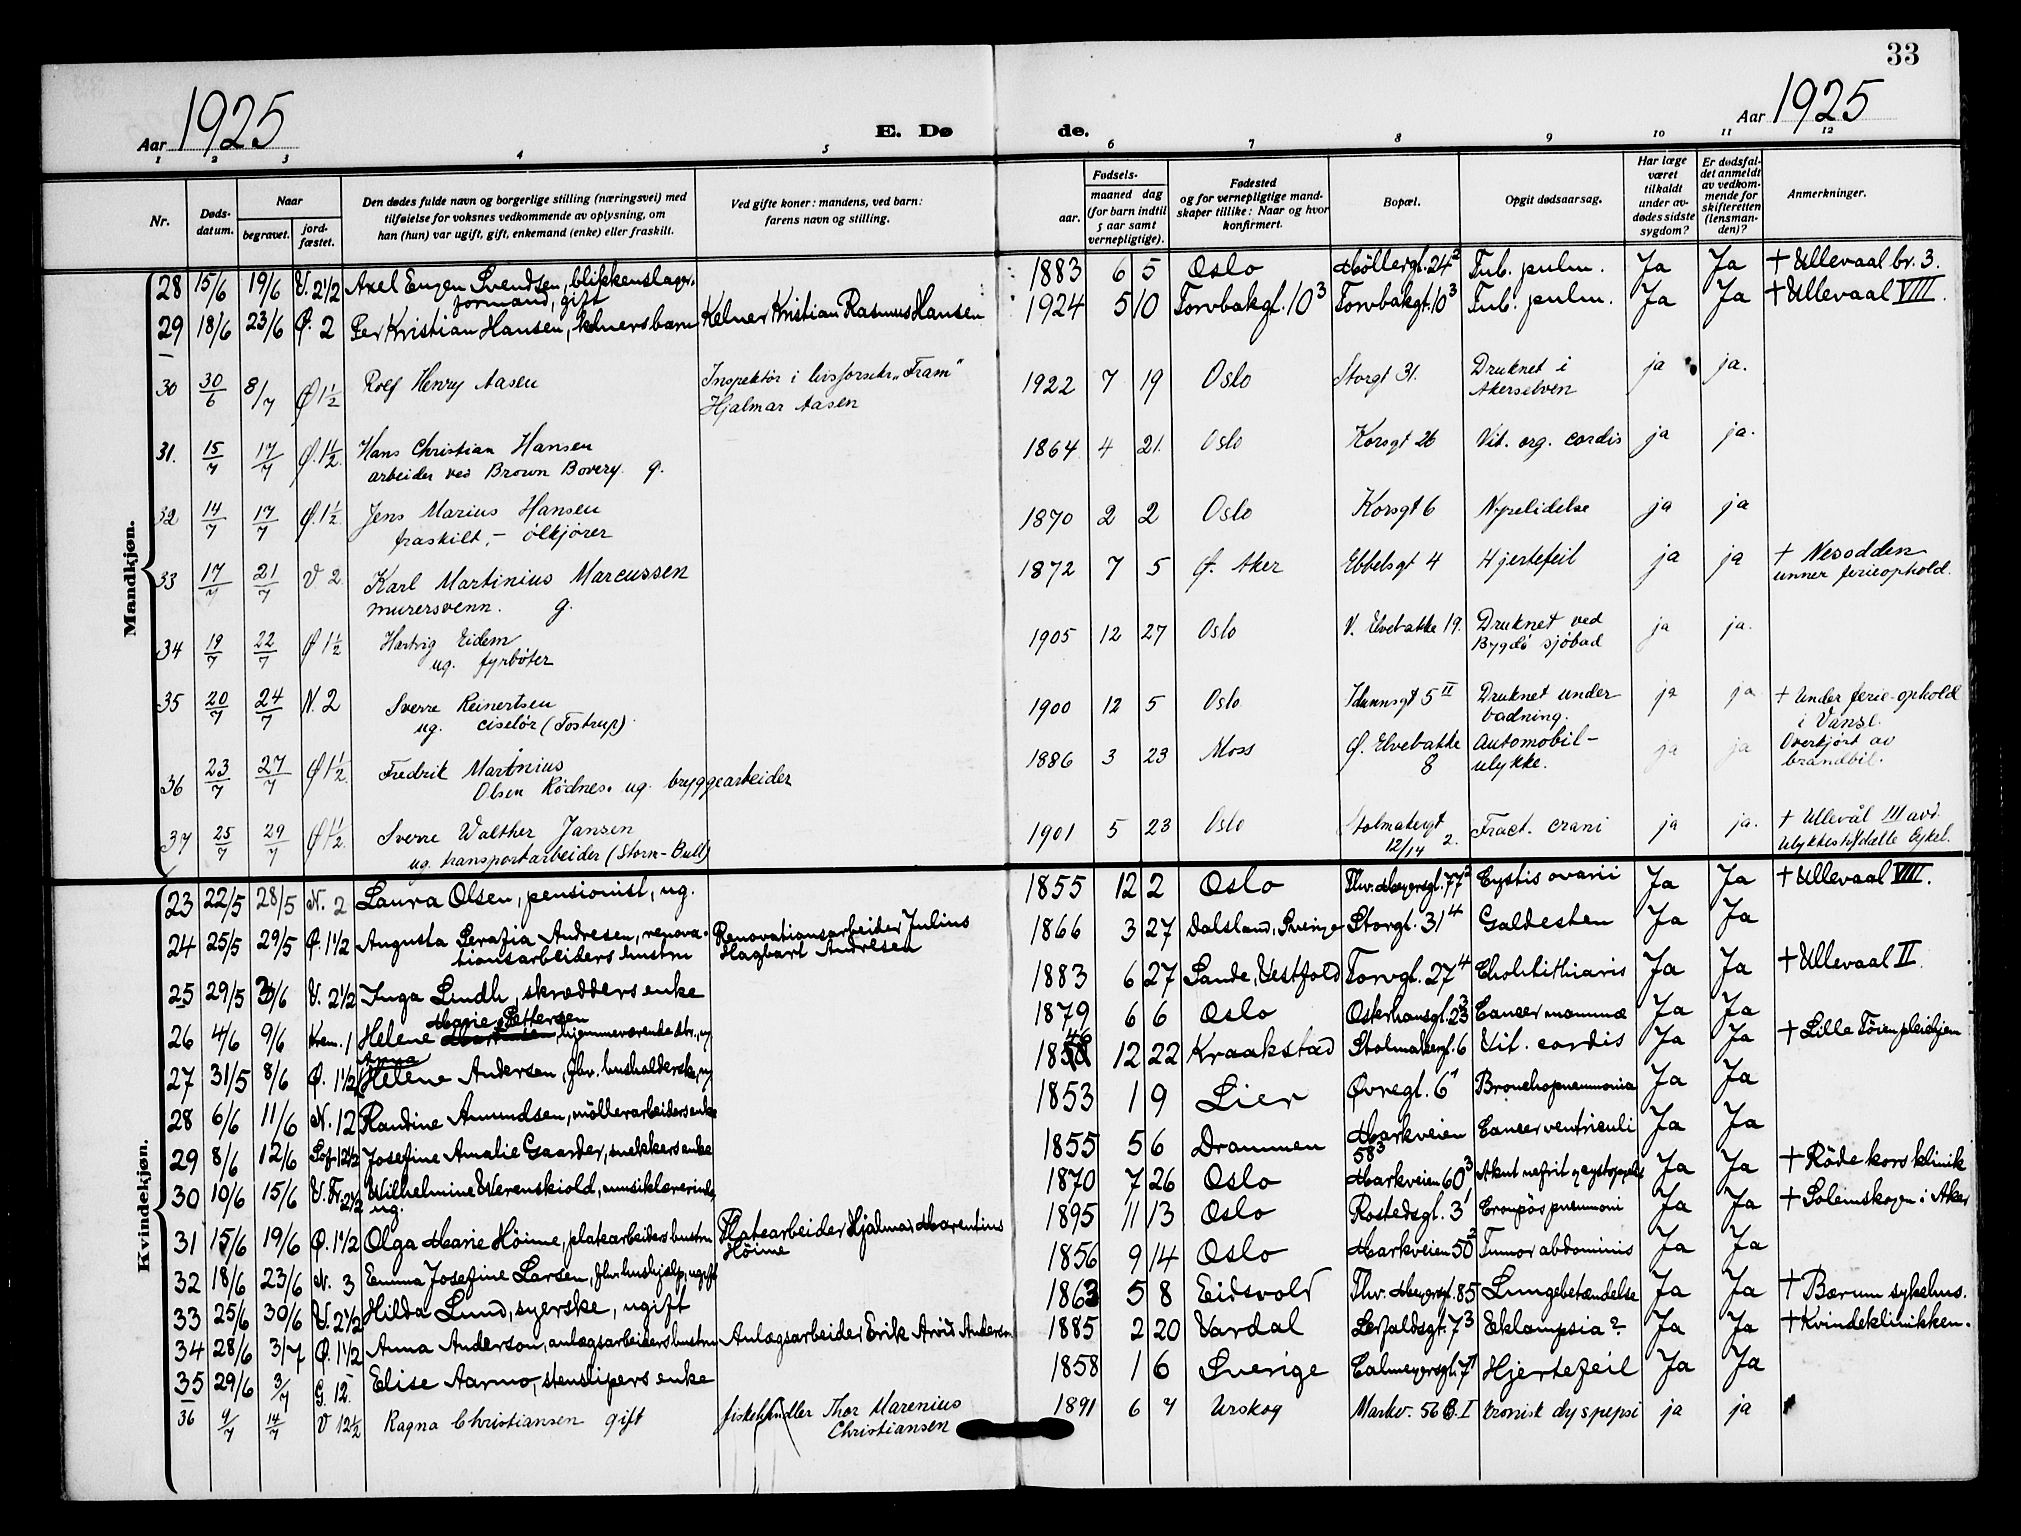 33
Aar 1925
E. Dø
de.
Aar 1925
1 2 3 4 5 6 7 8 9 10 11 12
Nr.
Døds-datum.
Naar
begravet.
jord-fæstet.
Den dødes fulde navn og borgerlige stilling (næringsvei) med
tilføielse for voksnes vedkommende av oplysning, om
han (hun) var ugift, gift, enkemand (enke) eller fraskilt.
Ved gifte koner: mandens, ved barn:
farens navn og stilling.
Fødsels-
aar.
maaned dag
(for barn indtil
5 aar samt
vernepligtige).
Fødested
og for vernepligtige mand-
skaper tillike: Naar og hvor
konfirmert.
Bopæl.
Opgit dødsaarsag.
Har læge
været
tilkaldt
under av-
dødes sidste
sygdom?
Er dødsfal-
det anmeldt
av vedkom-
mende for
skifteretten
(lensman-
den)?
Anmerkninger.
Mandkjøn.
28 15/6 19/6 V. 2 1/2 Axel Eugen Svendsen, blikkenslager- 1883 6 5 Oslo Møllergt. 24² Tub. pulm. Ja Ja + Ullevaal br. 3.
formand, gift
29 18/6 23/6 Ø. 2 Per Kristian Hansen, kelnersbarn Kelner Kristian Rasmus Hansen 1924 5 10 Torvbakgt. 10³ Torvbakgt. 10³ Tub. pulm. Ja Ja + Ullevaal VIII.
30 30/6 8/7 Ø 1 1/2 Rolf Henry Aasen Inspektør i livsforsikr. „Fram" 1922 7 19 Oslo Storgt 31. Druknet i ja ja.
Hjalmar Aasen Akerselven
31. 15/7 17/7 Ø. 1 1/2. Hans Christian Hansen 1864 4 21. Oslo Korsgt 26 Vit. org. cordis ja ja.
arbeider ved Brown Bovery. g.
32 14/7 17/7 Ø. 1 1/2. Jens Marius Hansen 1870 2 2 Oslo Korsgt 6 Nyrelidelse ja ja
fraskilt, - ølkjører
33 17/7 21/7 V 2. Karl Martinius Marcussen 1872 7 5 Ø. Aker Ebbelsgt 4 Hjertefeil ja ja + Nesodden
murersvenn. g. unner ferieophold.
34 19/7 22/7 Ø 1 1/2 Hartvig Eidem 1905 12 27 Oslo V. Elvebakke 19. Druknet ved ja ja.
ug. fyrbøter Bygdø sjøbad
35 20/7 24/7 N. 2 Sverre Reinertsen 1900 12 5 Oslo Idunnsgt 5 II Druknet under ja ja + Under ferie-ophold
ug. ciselør (Tostrup) badning. i Vanse.
36 23/7 27/7 Ø 1 1/2. Fredrik Martinius 1886 3 23 Moss Ø. Elvebakke Automobil- ja ja Overkjørt av
Olsen Rødnes. ug. bryggearbeider 8 ulykke. brandbil.
37 25/7 29/7 Ø 1 1/2. Sverre Walther Jansen 1901 5 23 Oslo Stolmakergt Fract. crani ja ja. + Ullevål III avd.
ug. transportarbeider (Storm-Bull) 12/14 2. Ulykkestilfælle Cykel.
Kvindekjøn.
23 22/5 28/5 N. 2 Laura Olsen, pensionist, ug. 1855 12 2 Oslo Thv. Meyersgt. 77² Cystis ovarii Ja Ja + Ullevaal VIII.
24 25/5 29/5 Ø. 1 1/2 Augusta Serafia Andresen, renova- Renovationsarbeider Julius 1866 3 27 Dalsland, Sverige Storgt. 31⁴ Galdesten Ja Ja
tionsarbeiders hustru Hagbart Andresen
25 29/5 3/6 V. 2 1/2 Inga Lindh, skrædders enke 1883 6 27 Sande, Vestfold Torvgt. 27⁴ Cholelithiasis Ja Ja + Ullevaal II.
Marie Pettersen
26 4/6 9/6 Krem. 1 Helene hjemmeværende dtr., ug 1879 6 6 Oslo Osterhausgt. 23³ Cancer mammæ Ja Ja
Anna
27 31/5 8/6 Ø. 1 1/2 Helene Andersen, fhv. husholderske, ug 1846 12 22 Kraakstad Stolmakergt. 6 Vit. cordis Ja Ja + Lille Tøien pleiehjem
28 6/6 11/6 N. 12 Randine Amundsen, møllerarbeiders enke 1853 1 9 Lier Øvregt. 6¹ Bronchopneumonia Ja Ja
29 8/6 12/6 Sof. 12 1/2 Josefine Amalie Gaarder, snekkers enke 1855 5 6 Drammen Markveien Cancer ventriculi Ja Ja
58³
30 10/6 15/6 V. Fr. 2 1/2 Wilhelmine Werenskiold, musiklærerinde 1870 7 26 Oslo Markveien 60³ Akut nefrit Ja Ja + Røde kors klinik
ug.
31 15/6 19/6 Ø. 1 1/2 Olga Marie Høime, platearbeiders hustru Platearbeider Hjalmar Marentius 1895 11 13 Oslo Rostedsgt. 3¹ Croupøs pneumoni Ja Ja + Solemskogen i Aker
Høime
32 18/6 23/6 N. 3 Emma Josefine Larsen, fhv. hushjælp, ugift 1856 9 14 Oslo Markveien 50² Tumor abdominis Ja Ja
33 25/6 30/6 V. 2 1/2 Hilda Lund, syerske, ugift 1863 5 8 Eidsvold Thv. Meyersgt. 85 Lungebetændelse Ja Ja + Bærum sykehus.
34 28/6 3/7 Ø. 1 1/2 Anna Anderson, anlægsarbeiders hustru Anlægsarbeider Erik Arvid Anderson 1885 2 20 Vardal Leirfaldsgt. 7³ Eklampsia? Ja Ja + Kvindeklinikken.
35 29/6 3/7 G 12 Elise Aarmo, stenslipers enke 1858 1 6 Sverige Calmeyersgt. 7¹ Hjertefeil Ja Ja
36 9/7 14/7 V 12 1/2 Ragna Christiansen gift fiskehandler Thor Marenius 1891 6 7 Urskog Markv. 56 B. I Kronisk dyspepsi ja ja
Christiansen